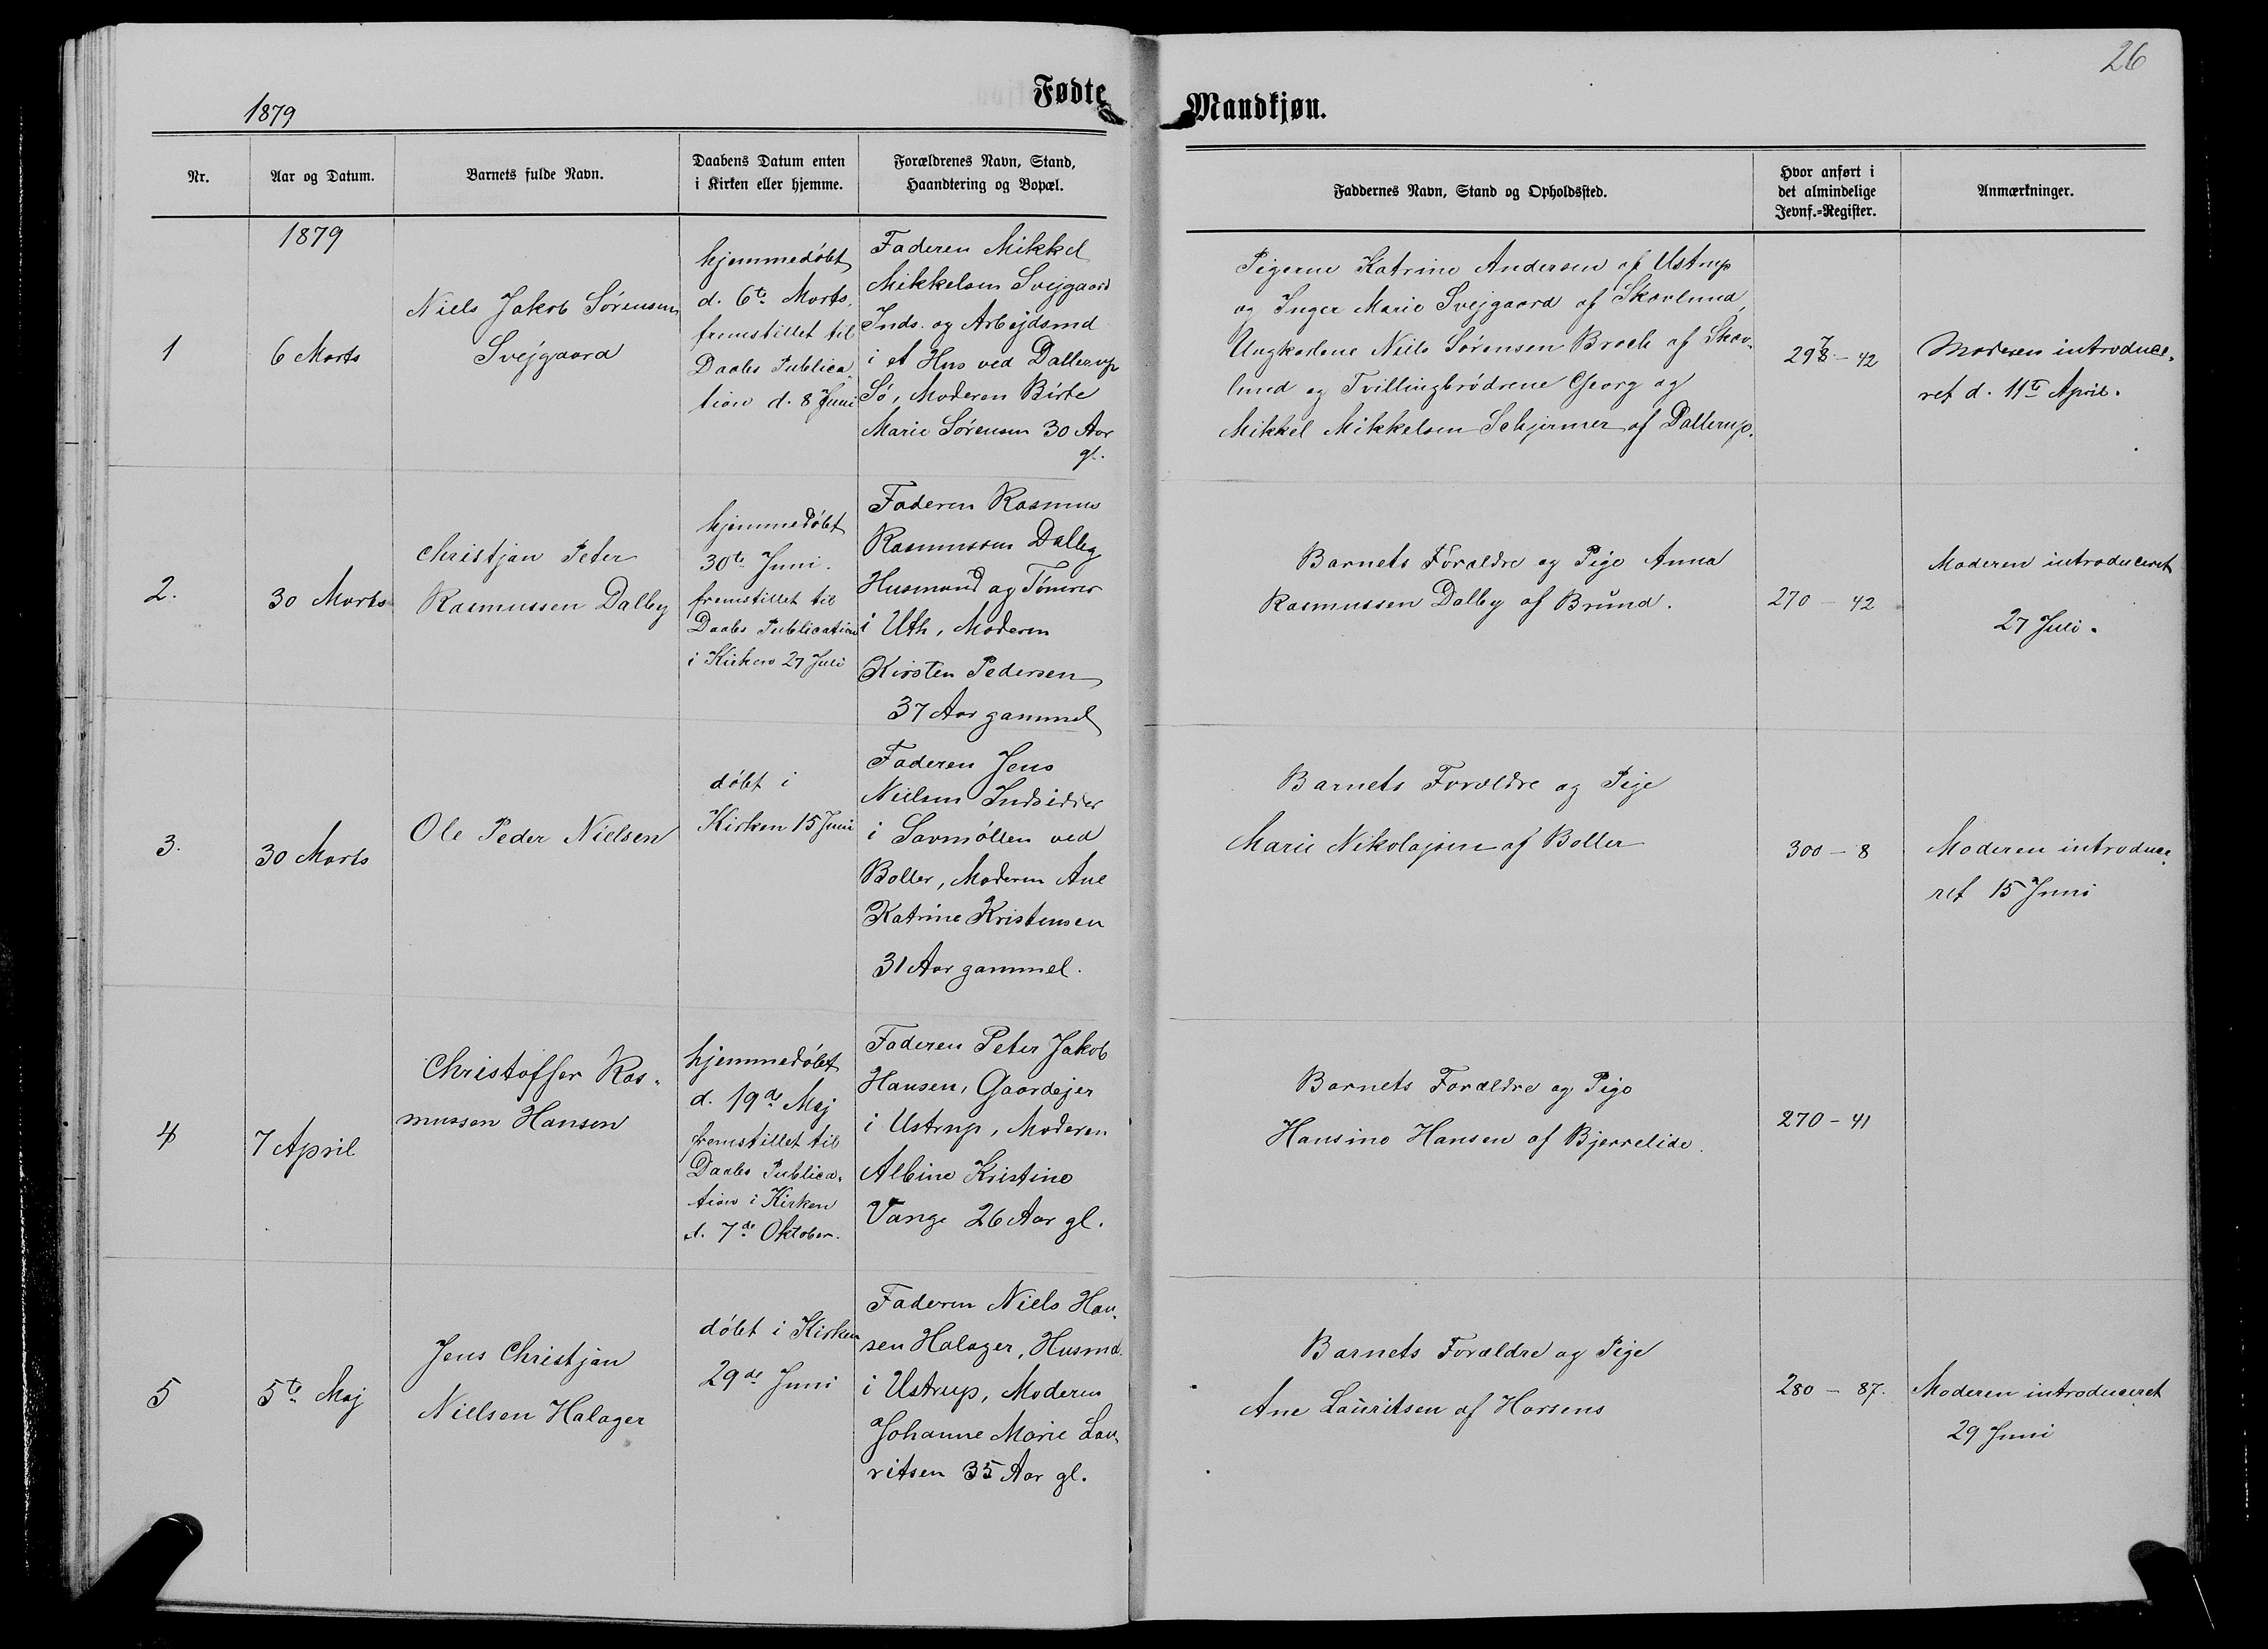 26
1879
Fødte Mandkjøn.
Nr.
Aar og Datum.
Barnets fulde Navn.
Daabens Datum enten
i Kirken eller hjemme.
Forældrenes Navn, Stand,
Haandtering og Bopæl.
Faddernes Navn, Stand og Opholdssted.
Hvor anført i
det almindelige
Jevnf.=Register.
Anmærkninger.
1879
1
6 Marts
Niels Jakob Sørensen
Svejgaard
hjemmedøbt
d. 6te Marts,
fremstillet til
Daabs Publica-
tion d. 8 Juni
Faderen Mikkel
Mikkelsen Svejgaard
Inds. og Arbejdsmd
i et Hus ved Dallerup
Sø, Moderen Birte
Marie Sørensen 30 Aar
gl.
Pigerne Katrine Andersen af Ustrup
og Inger Marie Svejgaard af Skovlund,
Ungkarlene Niels Sørensen Broch af Skov-
lund og Tvillingbrødrene Georg og
Mikkel Mikkelsen Schjermer af Dallerup.
297 - 42
Moderen introduce-
ret d. 11te April.
2.
30 Marts
Christjan Peter
Rasmussen Dalby
hjemmedøbt
30te Juni.
fremstillet til
Daabs Publication
i Kirken 27 Juli
Faderen Rasmus
Rasmussen Dalby
Husmand og Tømrer
i Uth, Moderen
Kirsten Pedersen
37 Aar gammel
Barnets Forældre og Pige Anna
Rasmussen Dalby af Brund.
270 - 42
Moderen introduceret
27 Juli.
3.
30 Marts
Ole Peder Nielsen
døbt i
Kirken 15 Juni
Faderen Jens
Nielsen Indsidder
i Savmøllen ved
Boller, Moderen Ane
Katrine Kristensen
31 Aar gammel.
Barnets Forældre og Pige
Marie Nikolajsen af Boller
300 - 8
Moderen introduce-
ret 15 Juni
4
7 April
Christoffer Ras-
mussen Hansen
hjemmedøbt
d. 19de Maj
fremstillet til
Daabs Publica-
tion i Kirken
d. 7de Oktober.
Faderen Peter Jakob
Hansen, Gaardejer
i Ustrup, Moderen
Albine Kristine
Vange 26 Aar gl.
Barnets Forældre og Pige
Hansine Hansen af Bjerrelide.
270 - 41
5
5te Maj
Jens Christjan
Nielsen Halager
døbt i Kirken
29de Juni
Faderen Niels Han-
sen Halager, Husmd.
i Ustrup, Moderen
Johanne Marie Lau-
ritsen 35 Aar gl.
Barnets Forældre og Pige
Ane Lauritsen af Horsens
280 - 87.
Moderen introduceret
29 Juni